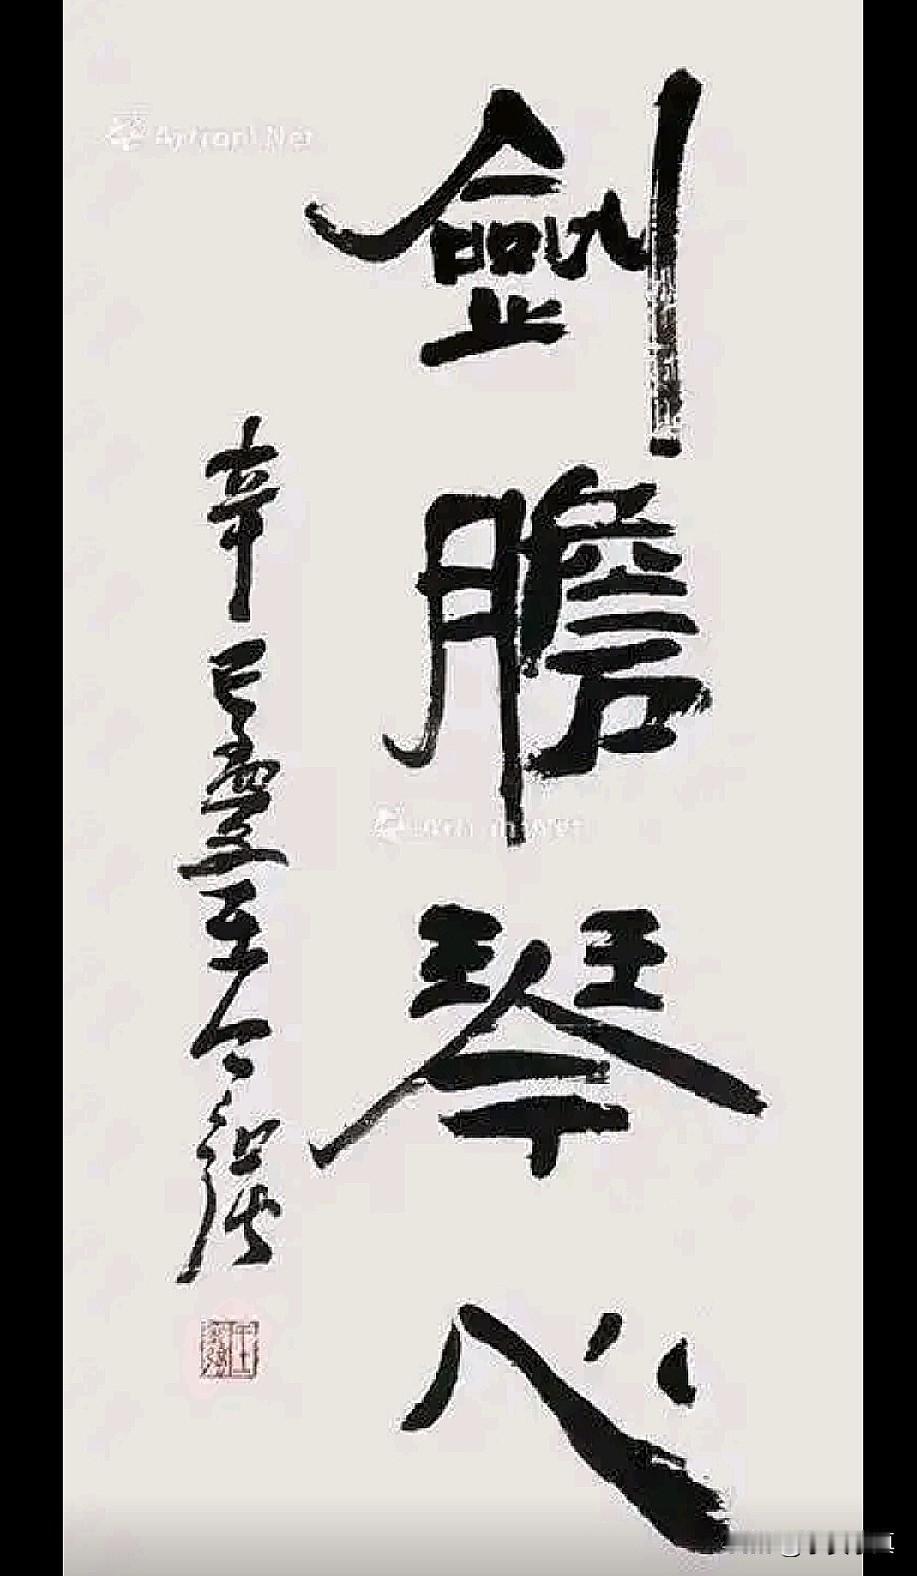 劍膽琴心
辛巳夏王今強
Artron.Net